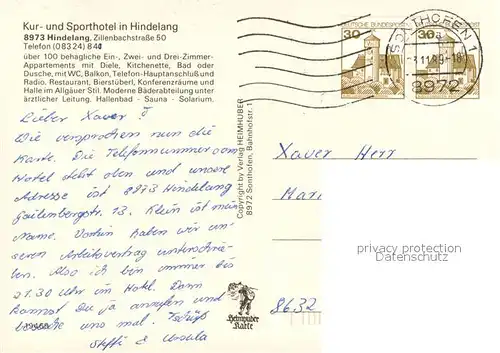 Kur- und Sporthotel in Hindelang
8973 Hindelang, Zillenbachstraße 50
Telefon (08324) 841
über 100 behagliche Ein-, Zwei- und Drei-Zimmer-
Appartements mit Diele, Kitchenette, Bad oder
Dusche, mit WC, Balkon, Telefon-Hauptanschluß und
Radio. Restaurant, Bierstüberl, Konferenzräume und
Halle im Allgäuer Stil. Moderne Bäderabteilung unter
ärztlicher Leitung. Hallenbad - Sauna - Solarium.
Lieber Xaver!
Wie versprochen nun die
Karte. Die Telefonnummer vom
Hotel steht oben und unsere
Adresse ist 8973 Hindelang
Gailenbergstr. 13. Klein ist mein
Name. Vorhin haben wir un-
seren Arbeitsvertrag unterschrie-
ben. Also ich bin immer bis
21.30 Uhr im Hotel. Dann
kannst Du ja anrufen und
besuche uns mal. Tschüß
Steffi & Ursula
Copyright by Verlag HEIMHUBER
8972 Sonthofen, Bahnhofstr. 1
Heimhuber
Karte
DEUTSCHE BUNDESPOST
30
30
SONTHOFEN 1
8972
Xaver Herr
Mari
privacy protection
8632